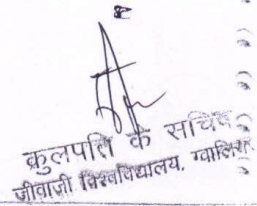 कुलपति के सचिव
जीवाजी विश्वविद्यालय, ग्वालियर